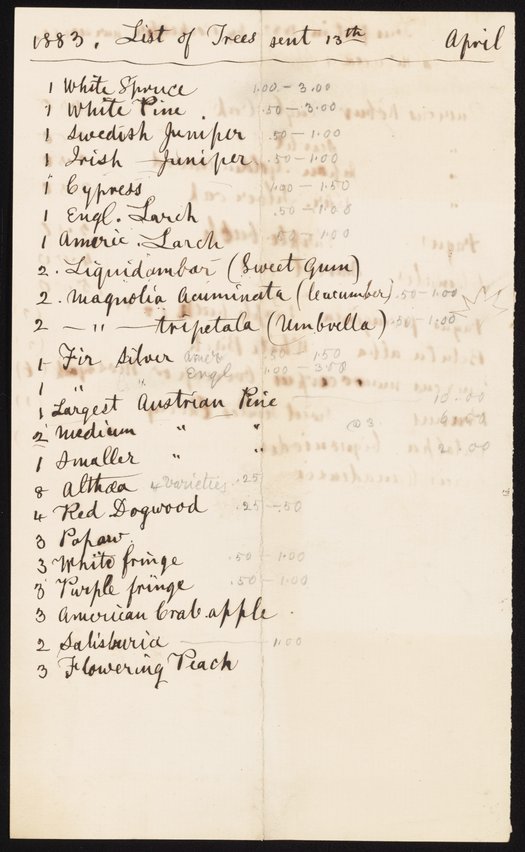 1883. List of Trees sent 13th April
1 White Spruce 1.00 - 3.00
1 White Pine .50 - 3.00
1 Swedish Juniper .50 - 1.00
1 Irish Juniper .50 - 1.00
1 Cypress 1.00 - 1.50
1 Engl. Larch .50 - 1.00
1 Americ. Larch .50 - 1.00
2. Liquidambar (Sweet Gum)
2. Magnolia Acuminata (Cucumber) .50 - 1.00
2 — " — tripetala (Umbrella) .50 - 1.00
1 Fir Silver Amer .50 - 1.50
1 " " Engl 1.00 - 3.00
1 Largest Austrian Pine 10.00
2 Medium " " @ 3. 6.00
1 Smaller " " 2.00
8 Althæa 4 Varieties .25
4 Red Dogwood .25 - .50
3 Papaw.
3 White fringe .50 - 1.00
3 Purple fringe .50 - 1.00
3 American Crab apple.
2 Salisburia 1.00
3 Flowering Peach